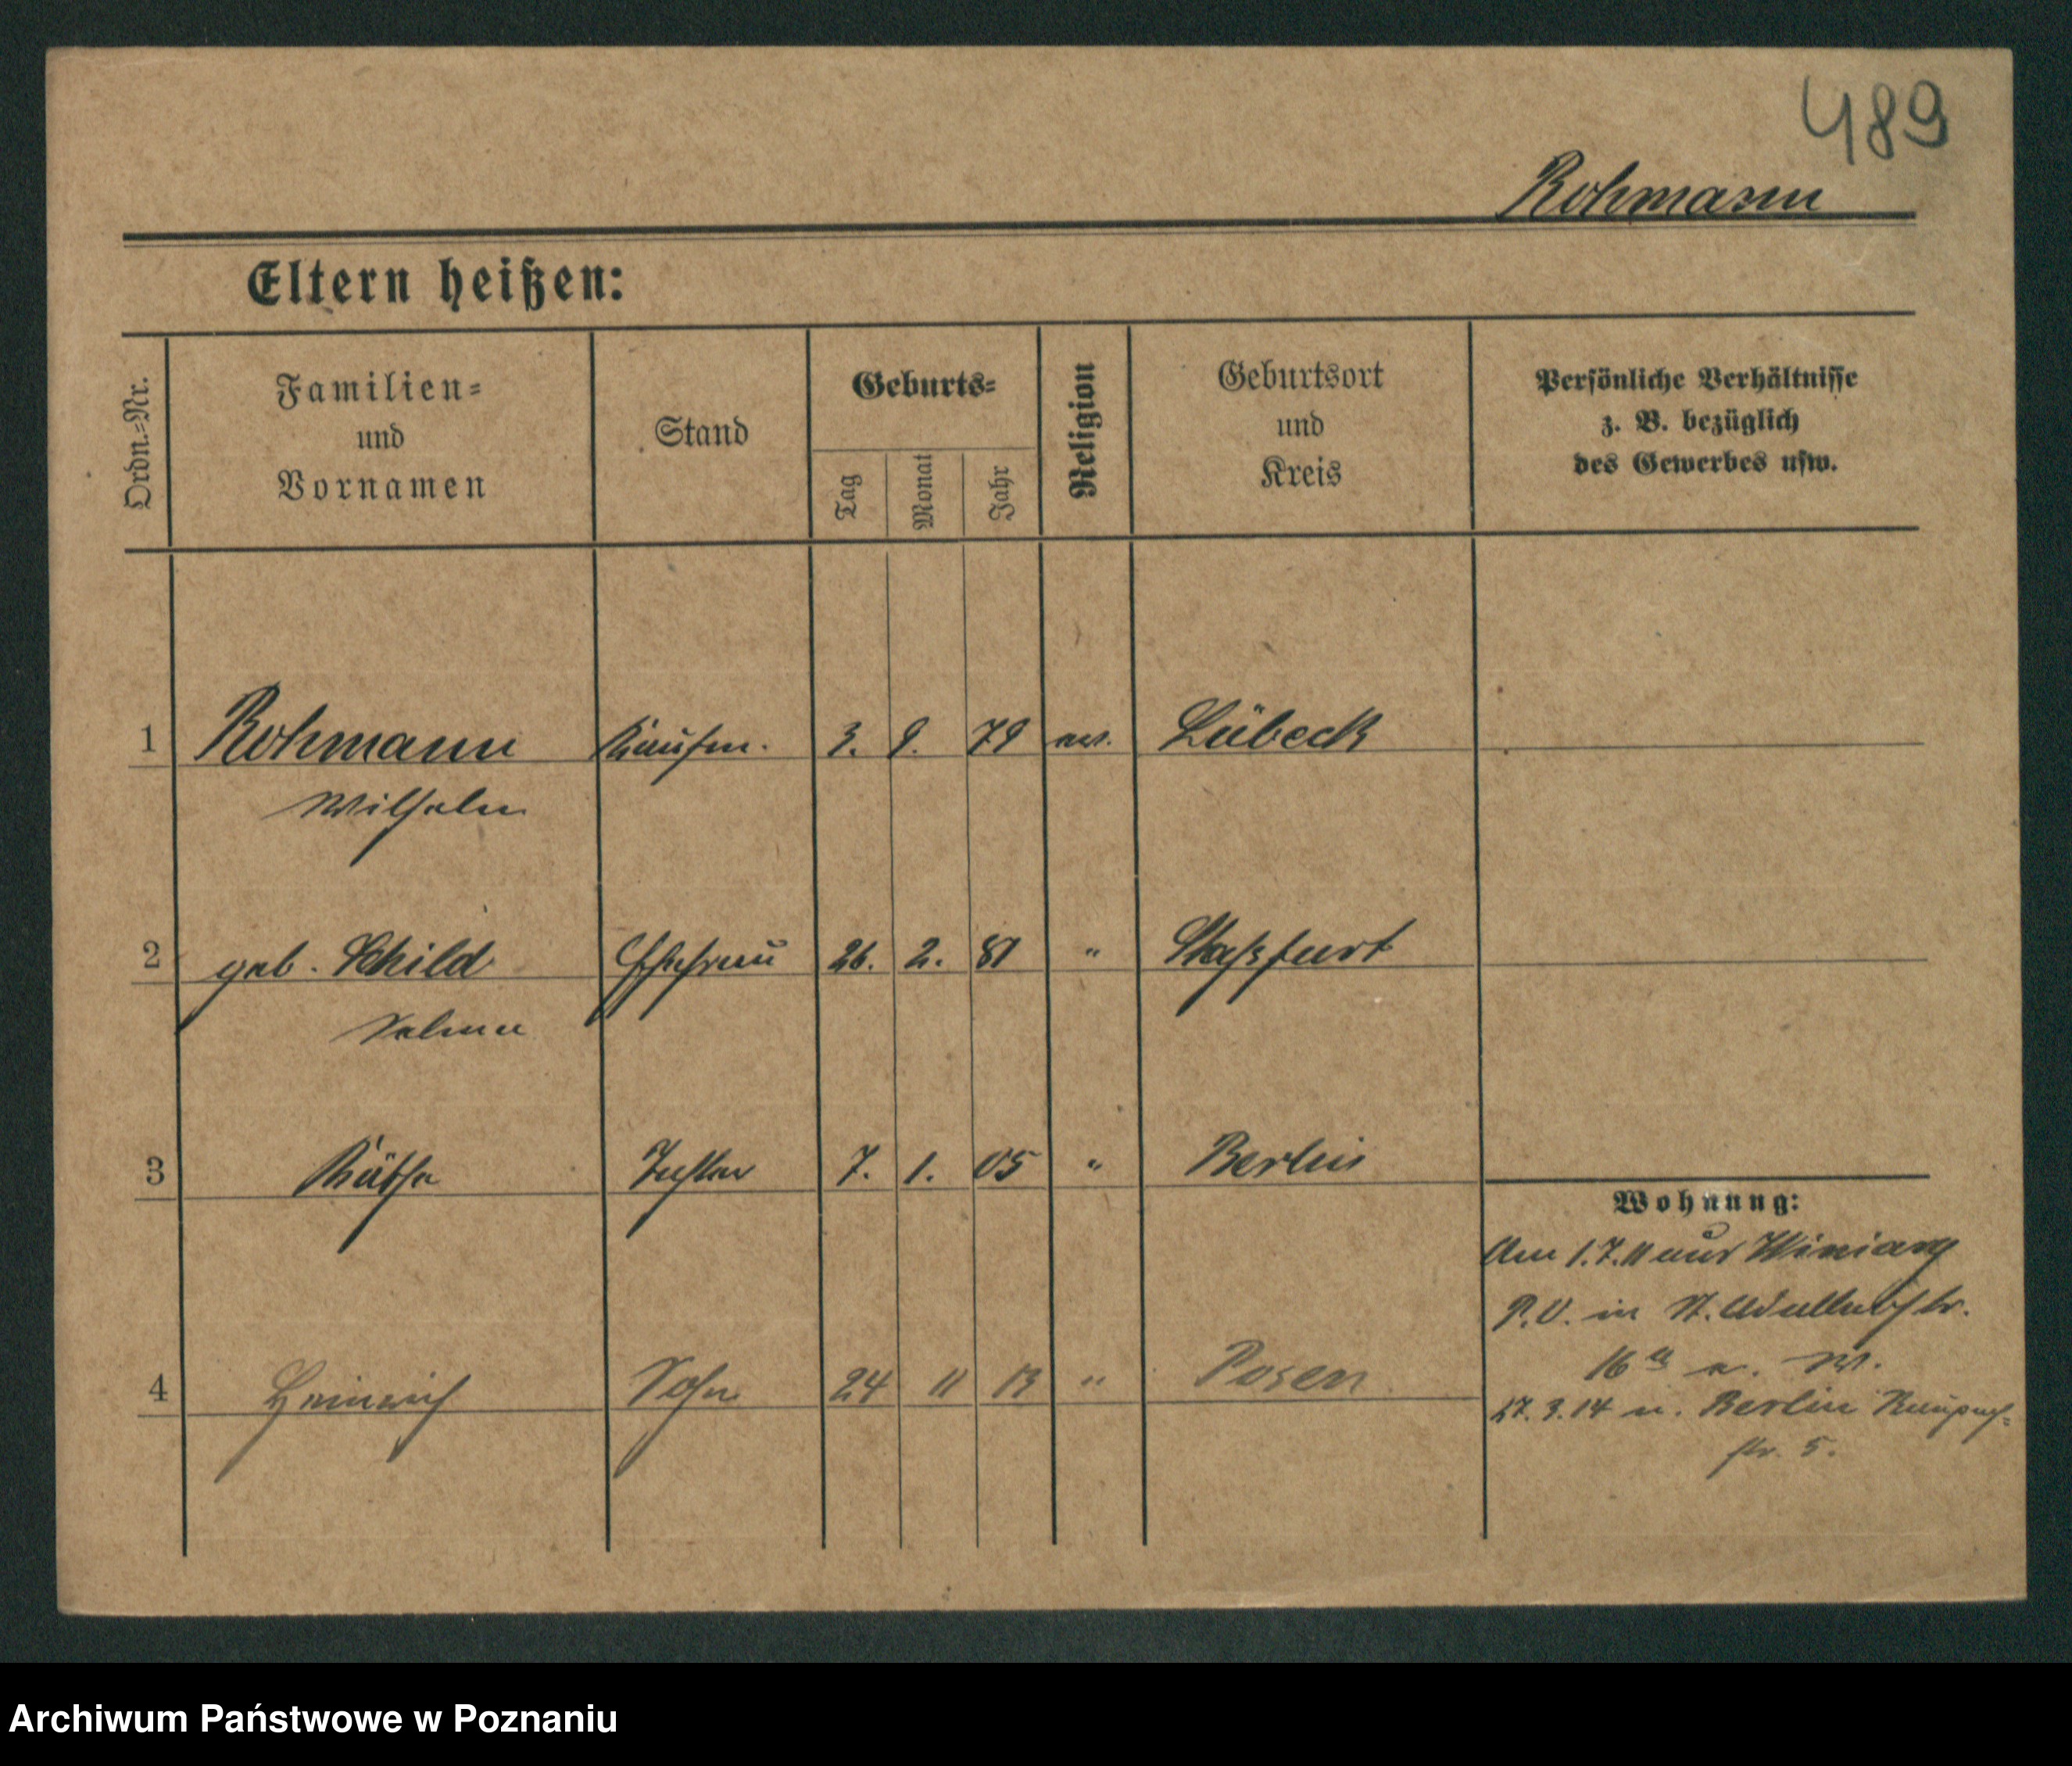 489
Rohmann
Eltern heißen:
Ordn.=Nr.
Familien=
und
Vornamen
Stand
Geburts=
Tag
Monat
Jahr
Religion
Geburtsort
und
Kreis
Persönliche Verhältnisse
z. B. bezüglich
des Gewerbes usw.
1 Rohmann Kaufm. 3. 9. 79 ev. Lübeck
Wilhelm
2 geb. Schild Ehefrau 26. 2. 81 " Staßfurt
Selma
3 Käthe Tochter 7. 1. 05 " Berlin
Wohnung:
Am 1.7.11 aus Winiary
P.V. in St. Adalbertstr.
16
4 Heinrich Sohn 24 11 13 " Posen
27.3.14 n. Berlin
str. 5.
Archiwum Państwowe w Poznaniu